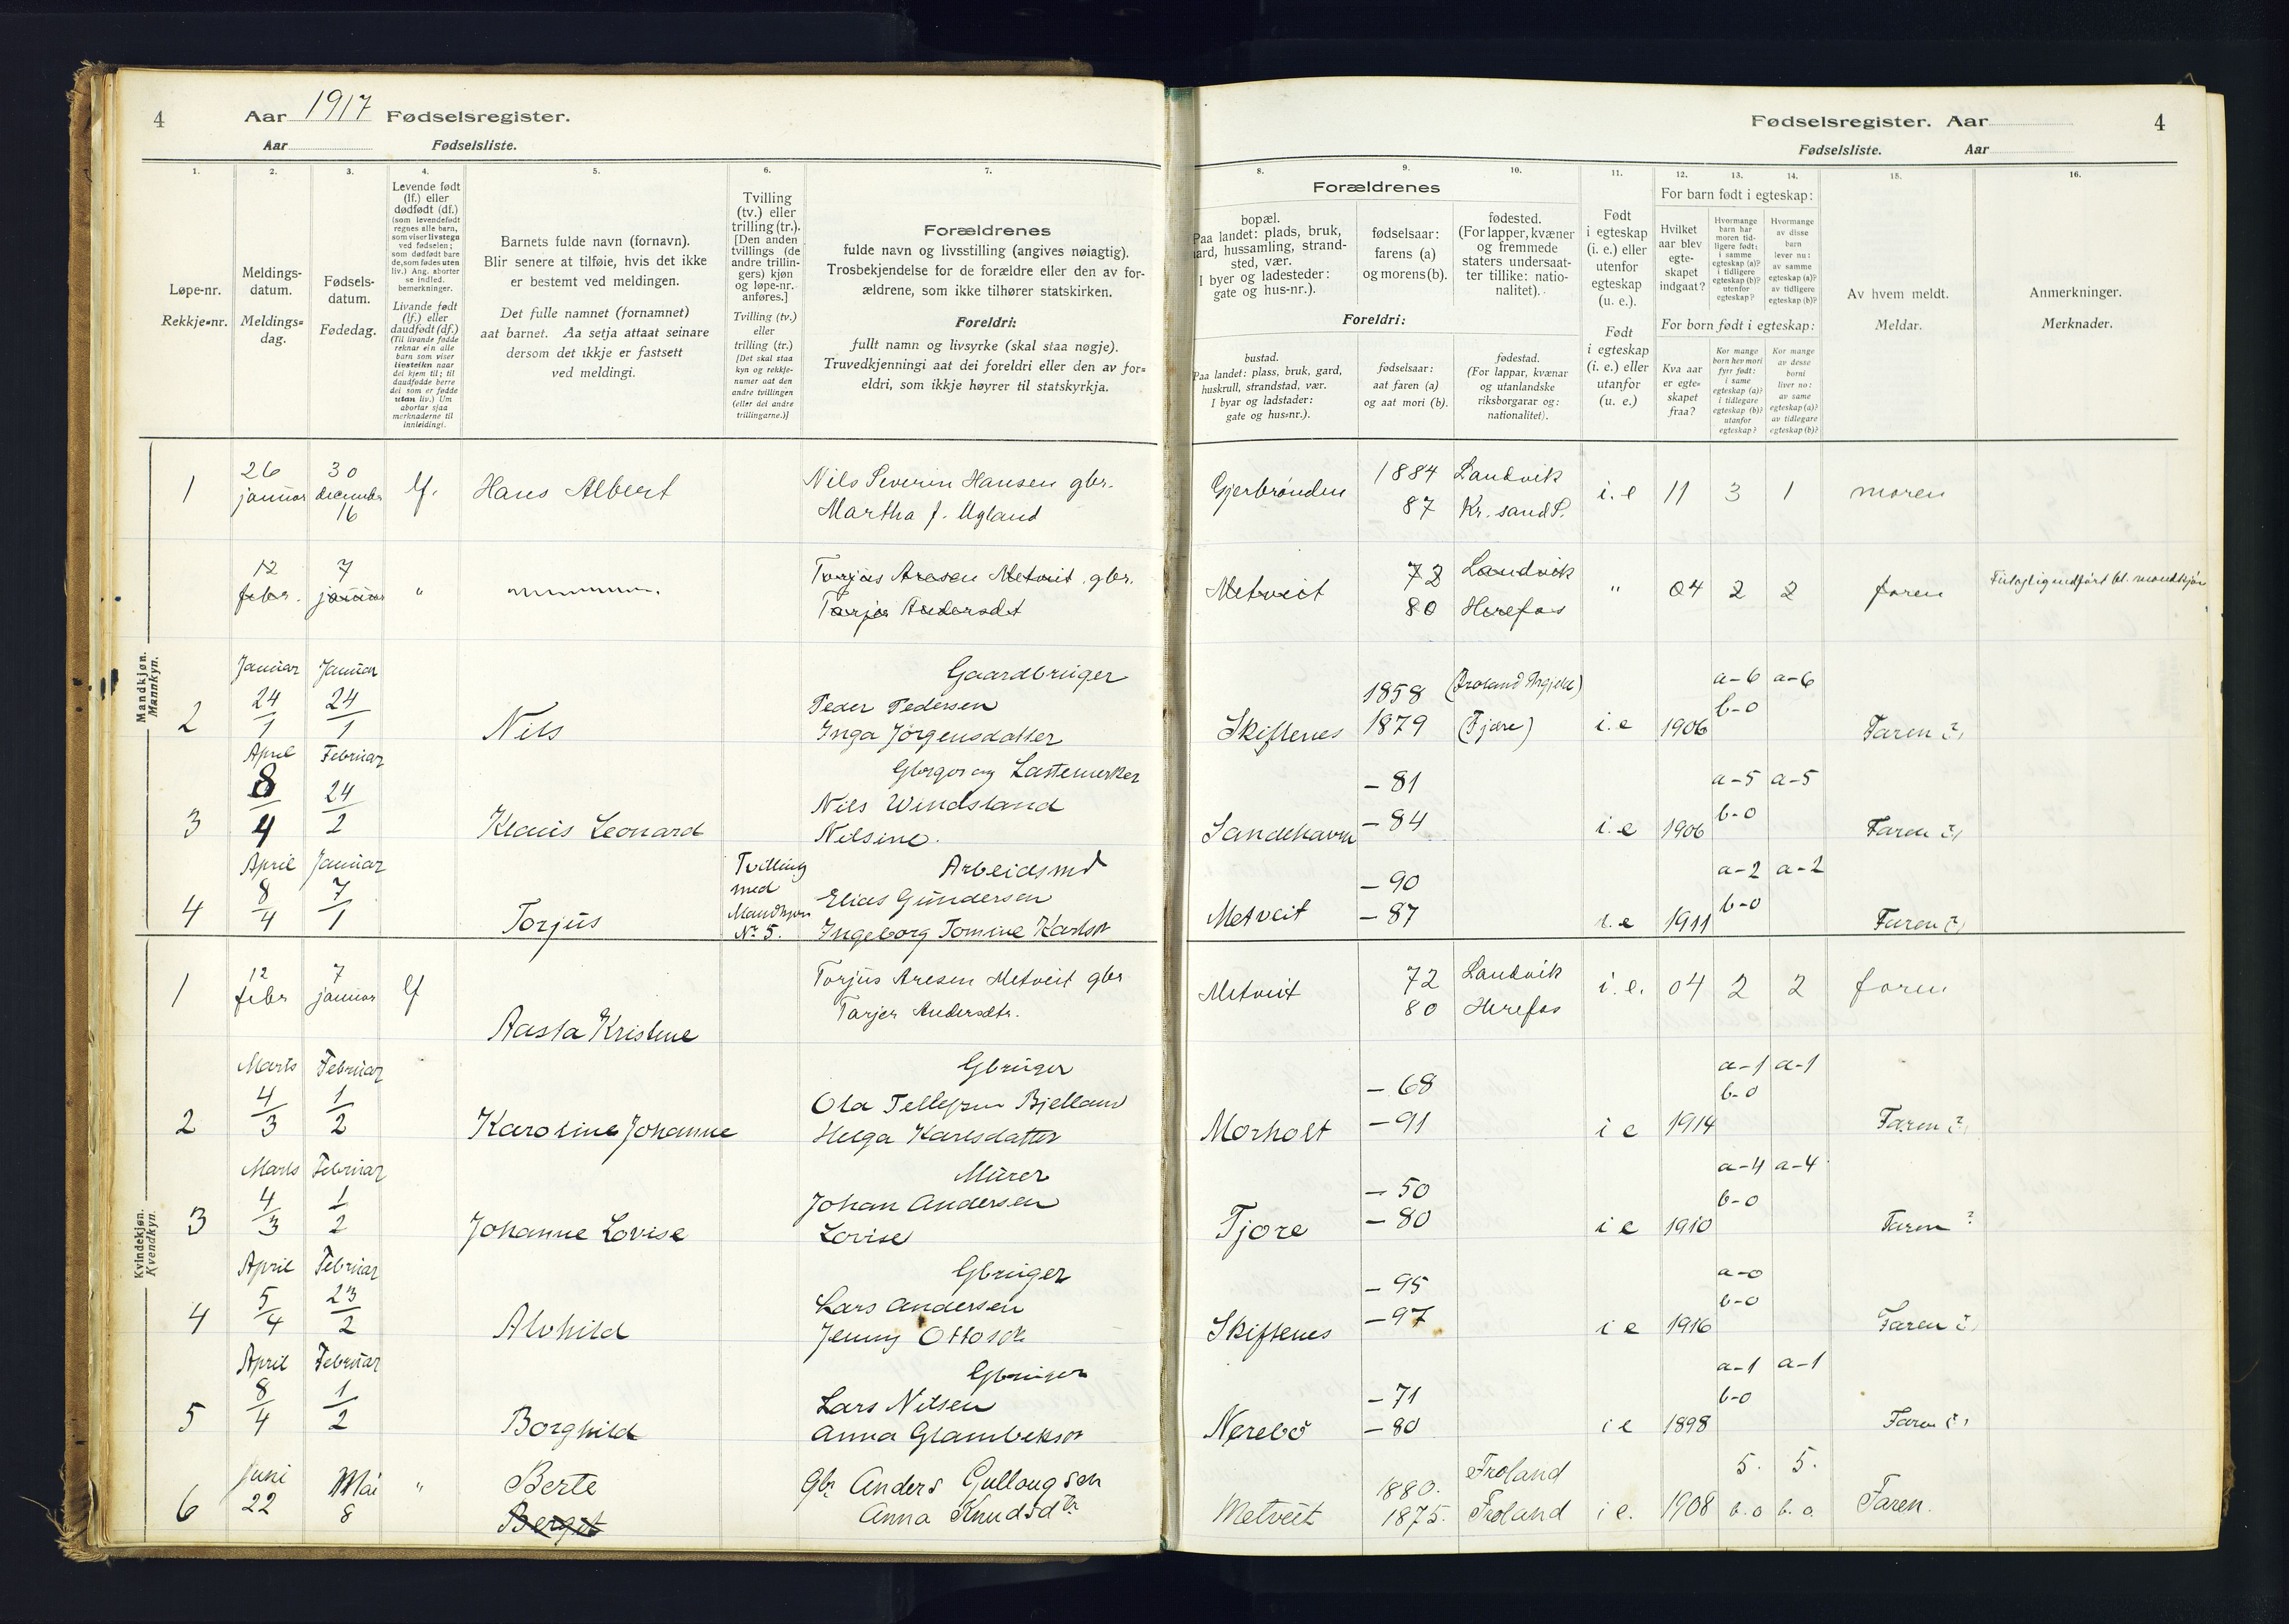 4 Aar 1917 Fødselsregister.
Aar Fødselsliste.
Fødselsregister. Aar 4
Fødselsliste. Aar
1. 2. 3. 4. 5. 6. 7.
Løpe-nr.
Rekkje-nr.
Meldings-
datum.
Meldings-
dag.
Fødsels-
datum.
Fødedag.
Levende født
(lf.) eller
dødfødt (df.)
(som levendefødt
regnes alle barn,
som viser livstegn
ved fødselen;
som dødfødt bare
de, som fødes uten
liv.) Ang. aborter
se indled.
bemerkninger.
Livande født
(lf.) eller
daudfødt (df.)
(Til livande fødde
reknar ein alle
barn som viser
livsteikn naar
dei kjem til; til
daudfødde berre
dei som er fødde
utan liv.) Um
abortar sjaa
merknaderne til
innleidingi.
Barnets fulde navn (fornavn).
Blir senere at tilføie, hvis det ikke
er bestemt ved meldingen.
Det fulle namnet (fornamnet)
aat barnet. Aa setja attaat seinare
dersom det ikkje er fastsett
ved meldingi.
Tvilling
(tv.) eller
trilling (tr.).
[Den anden
tvillings (de
andre trillin-
gers) kjøn
og løpe-nr.
anføres.]
Tvilling (tv.)
eller
trilling (tr.)
[Det skal staa
kyn og rekkje-
numer aat den
andre tvillingen
(eller dei andre
trillingarne.)]
Forældrenes
fulde navn og livsstilling (angives nøiagtig).
Trosbekjendelse for de forældre eller den av for-
ældrene, som ikke tilhører statskirken.
Foreldri:
fullt namn og livsyrke (skal staa nøgje).
Truvedkjenningi aat dei foreldri eller den av for-
eldri, som ikkje høyrer til statskyrkja.
8. 9. 10. 11. 12. 13. 14. 15. 16.
Forældrenes
bopæl.
Paa landet: plads, bruk,
gard, hussamling, strand-
sted, vær.
I byer og ladesteder:
gate og hus-nr.).
fødselsaar:
farens (a)
og morens (b).
fødested.
(For lapper, kvæner
og fremmede
staters undersaat-
ter tillike: natio-
nalitet).
Foreldri:
bustad.
Paa landet: plass, bruk, gard,
huskrull, strandstad, vær.
I byar og ladstader:
gate og hus-nr.).
fødselsaar:
aat faren (a)
og aat mori (b).
fødestad.
(For lappar, kvænar
og utanlandske
riksborgarar og:
nationalitet).
Født
i egteskap
(i. e.) eller
utenfor
egteskap
(u. e.).
Født
i egteskap
(i. e.) eller
utanfor
(u. e.)
For barn født i egteskap:
Hvilket
aar blev
egte-
skapet
indgaat?
Hvormange
barn har
moren tid-
ligere født:
i samme
egteskap (a)?
i tidligere
egteskap (b)?
utenfor
egteskap?
Hvormange
av disse
barn
lever nu:
av samme
egteskap (a)?
av tidligere
egteskap (b)?
For born født i egteskap:
Kva aar
er egte-
skapet
fraa?
Kor mange
born hev mori
fyrr født:
i same
egteskap (a)?
i tidlegare
egteskap (b)?
utanfor
egteskap?
Kor mange
av desse
borni
liver no:
av same
egteskap (a)?
av tidlegare
egteskap (b)?
Av hvem meldt.
Meldar.
Anmerkninger.
Merknader.
Mandkjøn.
Mannkyn.
1 26 januar 30 december 16 lf. Hans Albert
Nils Severin Hansen gbr.
Martha J. Ugland
Gjerbrønden 1884 Landvik
87 Kr. sand S.
i. e 11 3 1 moren
12 febr. 7 januar "
Torjus Aresen Metveit gbr.
Tarjer Andersdt
Metveit 72 Landvik
80 Herefos
" 04 2 2 faren
2 Januar 24/1 Januar 24/1 Nils
Gaardbruger
Peder Pedersen
Inga Jørgensdatter
Skiftenes 1858
1879 (Fjære)
i. e 1906 a-6 a-6
b-0
Faren
3 April 8/4 Februar 24/2 Klaus Leonard
Nils Windsland
Nilsine.
Sandehavn - 81
- 84
i. e 1906 a-5 a-5
b-0
Faren
4 April 8/4 Januar 7/1 Torjus
Tvilling
med
Mandkjøn
Nr 5.
Arbeidsmd
Elias Gundersen
Ingeborg Tomine Karlsdt
Metveit - 90
- 87
i. e 1911 a-2 a-2
b-0
Faren
Kvindekjøn.
Kvendkyn.
1 12 febr 7 januar lf Aasta Kristine
Torjus Aresen Metveit gbr
Tarjer Andersdtr.
Metveit 72 Landvik
80 Herefos
i. e. 04 2 2 faren
2 Marts 4/3 Februar 1/2 Karoline Johanne
Gbruger
Ola Tellefsen Bjelland
Helga Karlsdatter
Morholt - 68
- 91
i e 1914 a-1 a-1
b-0
Faren
3 Marts 4/3 Februar 1/2 Johanne Lovise
Murer
Johan Andersen
Lovise
Fjøre - 50
- 80
i e 1910 a-4 a-4
b-0
Faren ?
4 April 5/4 Februar 23/2 Alvhild
Gbruger
Lars Andersen
Jenny Ottosdt
Skiftenes - 95
- 97
i e 1916 a-0
b-0
Faren
5 April 8/4 Februar 1/2 Borghild
Gbruger
Lars Nilsen
Anna Glambeksdt
Nerebö - 71
- 80
i e 1898 a-1 a-1
b-0
Faren
6 Juni 22 Mai 8 " Berte
Bergit
Gbr Anders Gullougsen
Anna Knudsdtr
Metveit 1880. Froland
1875. Froland
i e. 1908 5. 5.
b. o b. o.
Faren.